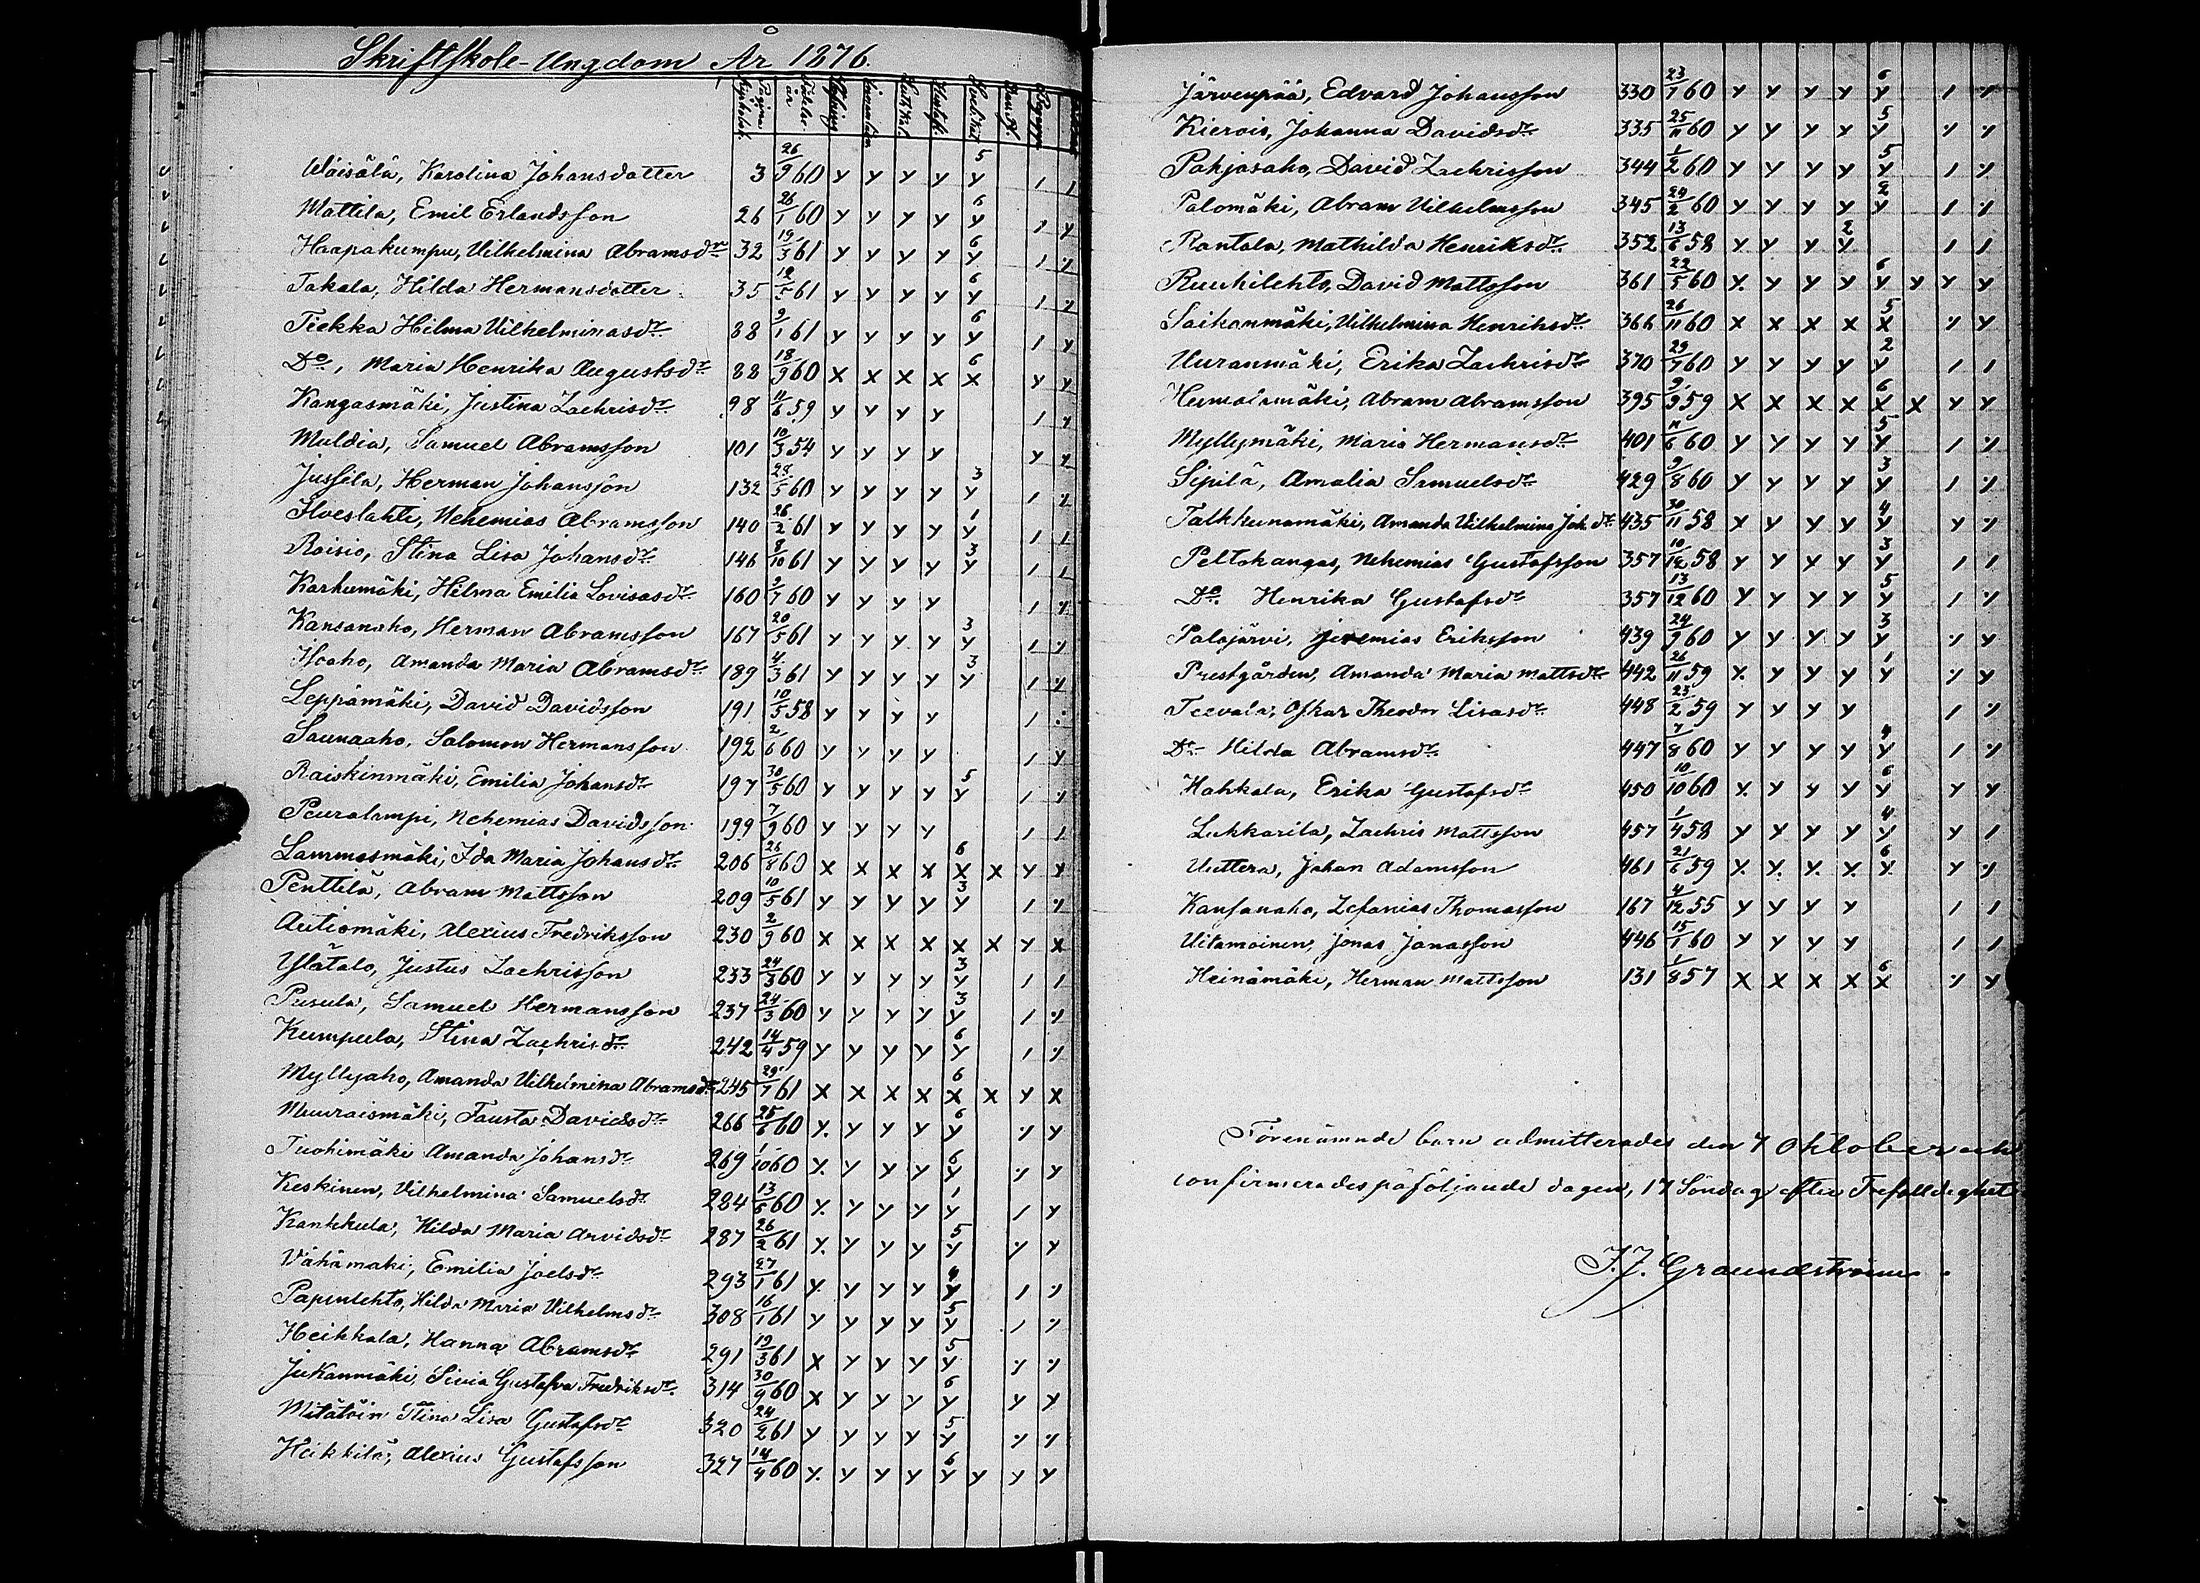 Skriftskole-Ungdom År 1876.
Wäisälä, Karolina Johansdotter 3 26/9 60 y y y y y 5 1 1
Mattila, Emil Erlandsson 26 26/1 60 y y y y y 6 1 y
Haapakumpu, Vilhelmina Abramsdr 32 19/3 61 y y y y y 6 1 y
Takala, Hilda Hermansdotter 35 12/5 61 y y y y y 6 1 y
Tiekka Hilma Vilhelminasdr 88 9/1 61 y y y y y 6 1 y
Do, Maria Henrika Augustsdr 88 18/9 60 x x x x x 6 y y
Kangasmäki, Justina Zachrisdr 98 11/6 59 y y y y 1 y
Muldia, Samuel Abramsson 101 10/3 54 y y y y y y
Jussila, Herman Johansson 132 28/5 60 y y y y y 3 1 y
Ilveslahti, Nehemias Abramsson 140 26/2 61 y y y y y 1 1 1
Raisio, Stina Lisa Johansdr 146 8/10 61 y y y y y 3 1 1
Karhumäki, Hilma Emilia Lovisasdr 160 9/7 60 y y y y 1 y
Kansanaho, Herman Abramsson 167 20/5 61 y y y y y 3 1 y
Isoaho, Amanda Maria Abramsdr 189 4/3 61 y y y y y 3 1 y
Leppämäki, David Davidsson 191 10/5 58 y y y y 1
Saunaaho, Salomon Hermansson 192 2/6 60 y y y y 1 y
Raiskinmäki, Emilia Johansdr 197 30/5 60 y y y y y 5 1 y
Peuralampi, Nehemias Davidsson 199 7/9 60 y y y y 1 1
Lammasmäki, Ida Maria Johansdr 206 26/8 60 x x x x x 6 x y y
Penttilä, Abram Mattsson 209 10/5 61 y y y y y 3 1 y
Autiomäki, Alexius Fredriksson 230 2/9 60 x x x x x x y x
Ylätalo, Justus Zachrisson 233 24/3 60 y y y y y 3 1 1
Pusula, Samuel Hermansson 237 24/3 60 y y y y y 3 1 y
Kumpula, Stina Zachrisdr 242 14/4 59 y y y y y 6 1 y
Myllyaho, Amanda Vilhelmina Abramsdr 245 29/1 61 x x x x x 6 x y x
Muuraismäki, Fausta Davidsdr 266 25/6 60 y y y y y 6 y y
Tuohimäki Amanda Johansdr 269 1/10 60 y y y y y 6 y y
Keskinen, Vilhelmina Samuelsdr 284 13/6 60 y y y y y 1 1 y
Kankkula, Hilda Maria Arvidsdr 287 26/2 61 y y y y y 5 y y
Vähämäki, Emilia Joelsdr 293 27/1 61 y y y y y 4 1 y
Papinlehto, Hilda Maria Vilhelmsdr 308 16/1 61 y y y y y 5 1 y
Heikkala, Hanna Abramsdr 291 19/3 61 x y y y y 5 y y
Jukanmäki, Livia Gustafva Fredriksdr 314 30/9 60 x y y y y 6 y y
Mitätöin Stina Lisa Gustafsdr 320 24/2 61 y y y y y 5 y y
Heikkilä, Alexius Gustafsson 327 14/4 60 y y y y y 6 y y y
Järvenpää, Edvard Johansson 330 23/1 60 y y y y y 6 1 y
Kierois, Johanna Davidsdr 335 25/11 60 y y y y y 5 y y
Pohjasaho, David Zachrisson 344 1/2 60 y y y y y 5 1 y
Palomäki, Abram Vilhelmsson 345 24/2 60 y y y y y 2 1 y
Rantala, Mathilda Henriksdr 352 13/6 58 y y y y 2 1 1
Ruuhilehto, David Mattsson 361 22/5 60 y y y y y 6 y y y
Saikanmäki, Vilhelmina Henriksdr 366 26/11 60 x x x x x 5 y y
Uuranmäki, Erika Zachrisdr 370 29/7 60 y y y y y 2 1 1
Abram Abramsson 395 9/9 59 x x x x x 6 x y y
Myllymäki, Maria Hermansdr 401 11/6 60 y y y y y 5 1 y
Sipilä, Amalia Samuelsdr 429 9/8 60 y y y y y 3 1 y
Talkkunamäki, Amanda Vilhelmina Joh.dr 435 30/11 58 y y y y y 4 y y
Peltokangas, Nehemias Gustafsson 357 10/12 58 y y y y y 3 1 1
Do Henrika Gustafsdr 357 13/12 60 y y y y y 5 1 y
Palojärvi, Jeremias Eriksson 439 24/9 60 y y y y y 3 y y
Prestgården, Amanda Maria Mattsdr 442 26/11 59 y y y y y 1 y y
Teevala, Oskar Theodor Lisasdr 448 23/2 59 y y y y 1 y
Do Hilda Abramsdr 447 7/8 60 y y y y y 4 1 y
Hahkala, Erika Gustafsdr 450 10/10 60 y y y y y 6 y y
Lukkarila, Zachris Mattsson 457 1/4 58 y y y y y 4 y 1
Uuttera, Johan Adamsson 461 21/6 59 y y y y y 6 y y
Kansanaho, Zefanias Thomasson 167 4/12 55 y y y y 1 1
Vitamoinen, Jonas Jonasson 446 15/1 60 y y y y 1 1
Heinämäki, Herman Mattsson 131 1/8 57 x x x x x 6 y y
Förenämnde barn admitterades den 7 Oktober och
confirmerades påföljande dagen, 17 Söndag efter Trefaldighet
J. J. Graundström.